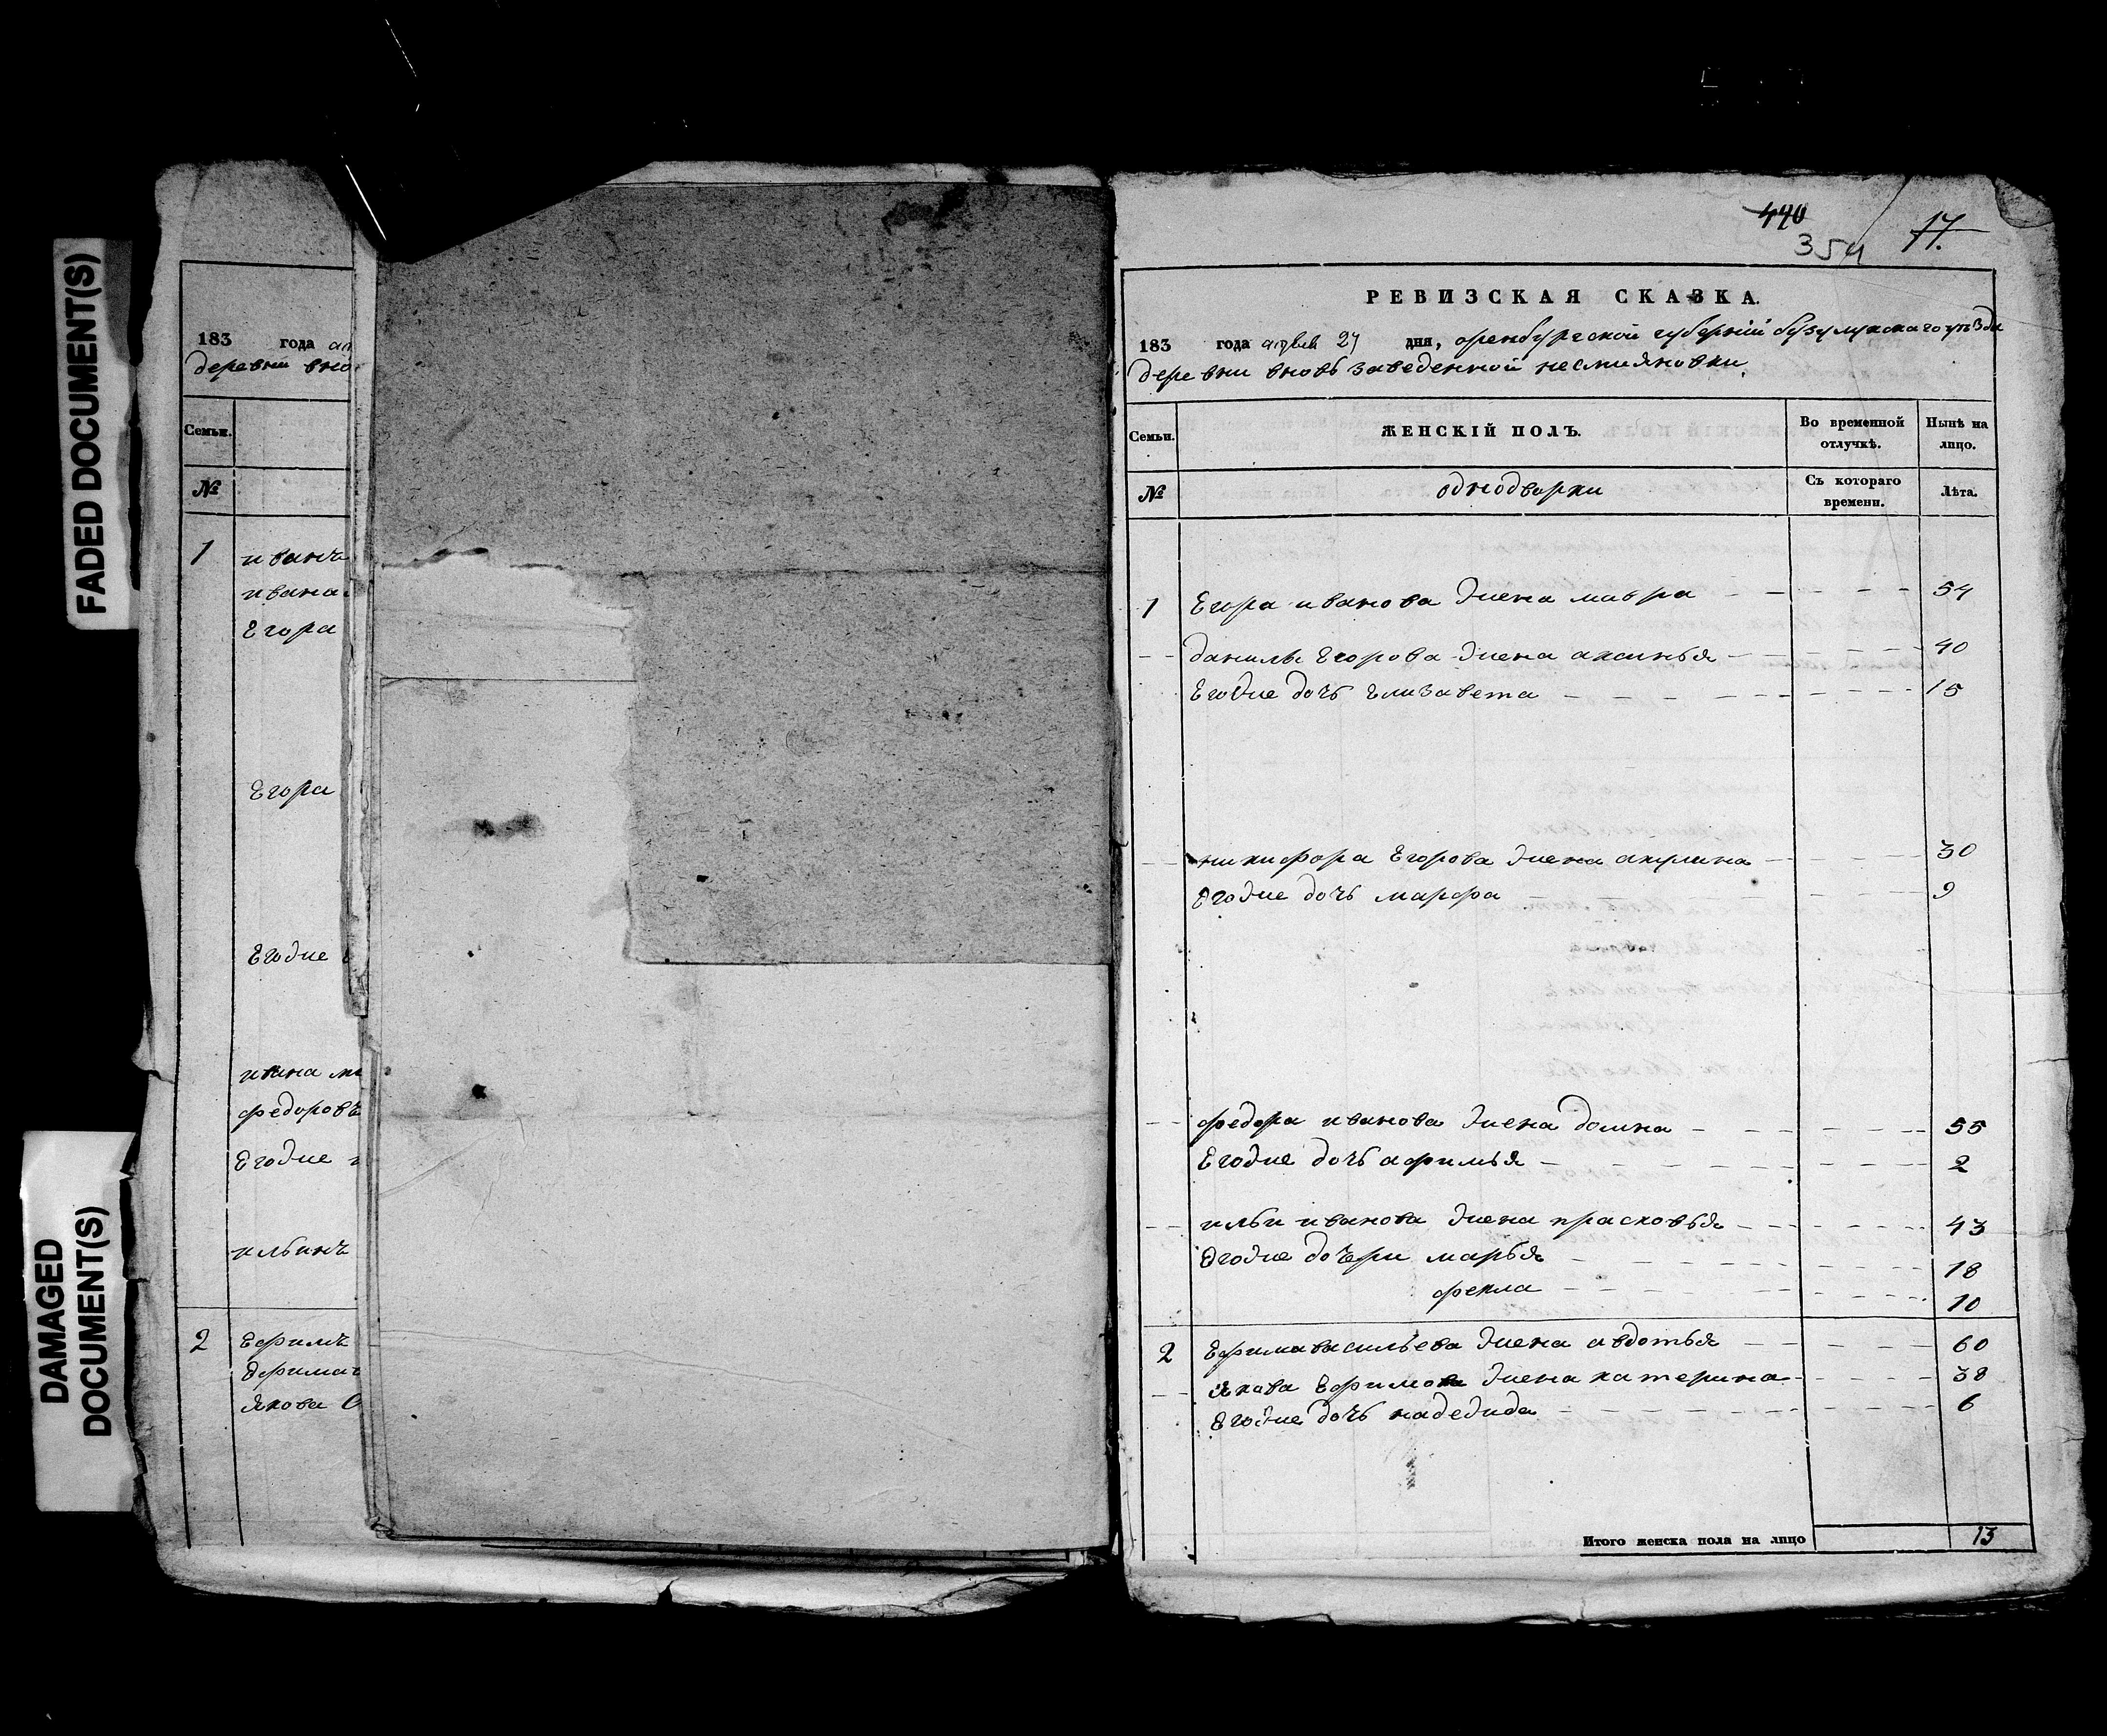 FADED DOCUMENT(S)
DAMAGED
DOCUMENT(S)
183 года ап
деревни вно
Семьи.
№
1 иванъ
ивана
Егора
Егора
Егодже
ивана
федоровъ
Егодже
ильинъ
2 Ефимъ
Ефима
Якова
440
354 17.
РЕВИЗСКАЯ СКАЗКА.
183 года апреля 27 дня, оренбургской губерній бузулукскаго уѣзда
деревни вновь заведенной несмияновки.
Семьи. ЖЕНСКІЙ ПОЛЪ. Во временной отлучкѣ. Нынѣ на лицо.
№ однодворки Съ котораго времени. Лѣта.
1 Егора иванова жена мавра 54
данилы Егорова жена аксинья 40
Егодже дочь Елизавета 15
никифора Егорова жена акулина 30
Егодже дочь марфа 9
федора иванова жена домна 55
Егодже дочь афимья 2
ильи иванова жена прасковья 43
Егодже дочери марья 18
фекла 10
2 Ефима васильева жена авдотья 60
Якава Ефимова жена катерина 38
Егодже дочь надежда 6
Итого женска пола на лицо 13